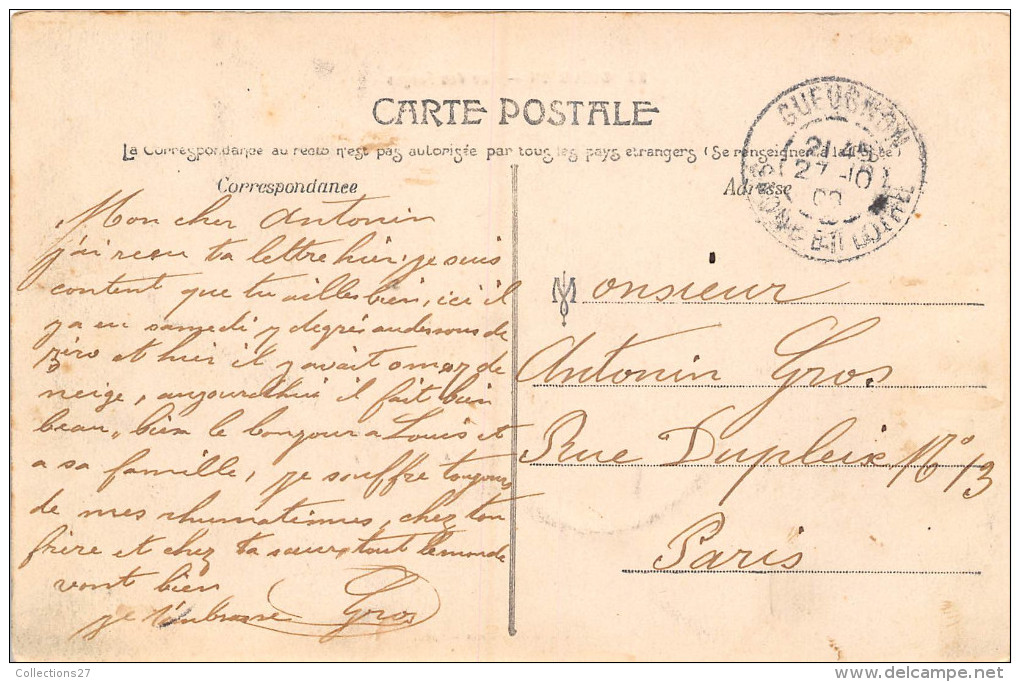 CARTE POSTALE
La Correspondance au recto n'est pas autorisée par tous les pays etrangers (Se renseigner à la Poste)
Correspondance
Adresse
GUEUGNON
21 45
27 10
08
SAONE-ET-LOIRE
Mon cher Antonin
j'ai reçu ta lettre hier, je suis
content que tu ailles bien, ici il
y a eu samedi 7 degrés au dessous de
zéro et hier il y avait de
neige, aujourdhui il fait bien
beau, bien le bonjour a Louis et
a sa famille, je souffre toujours
de mes rhumatismes, chez ton
frère et chez ta sœur tout le monde
vont bien
je t'embrasse Gros
Monsieur
Antonin Gros
Rue Dupleix No 13
Paris
Collections27
delcampe.net